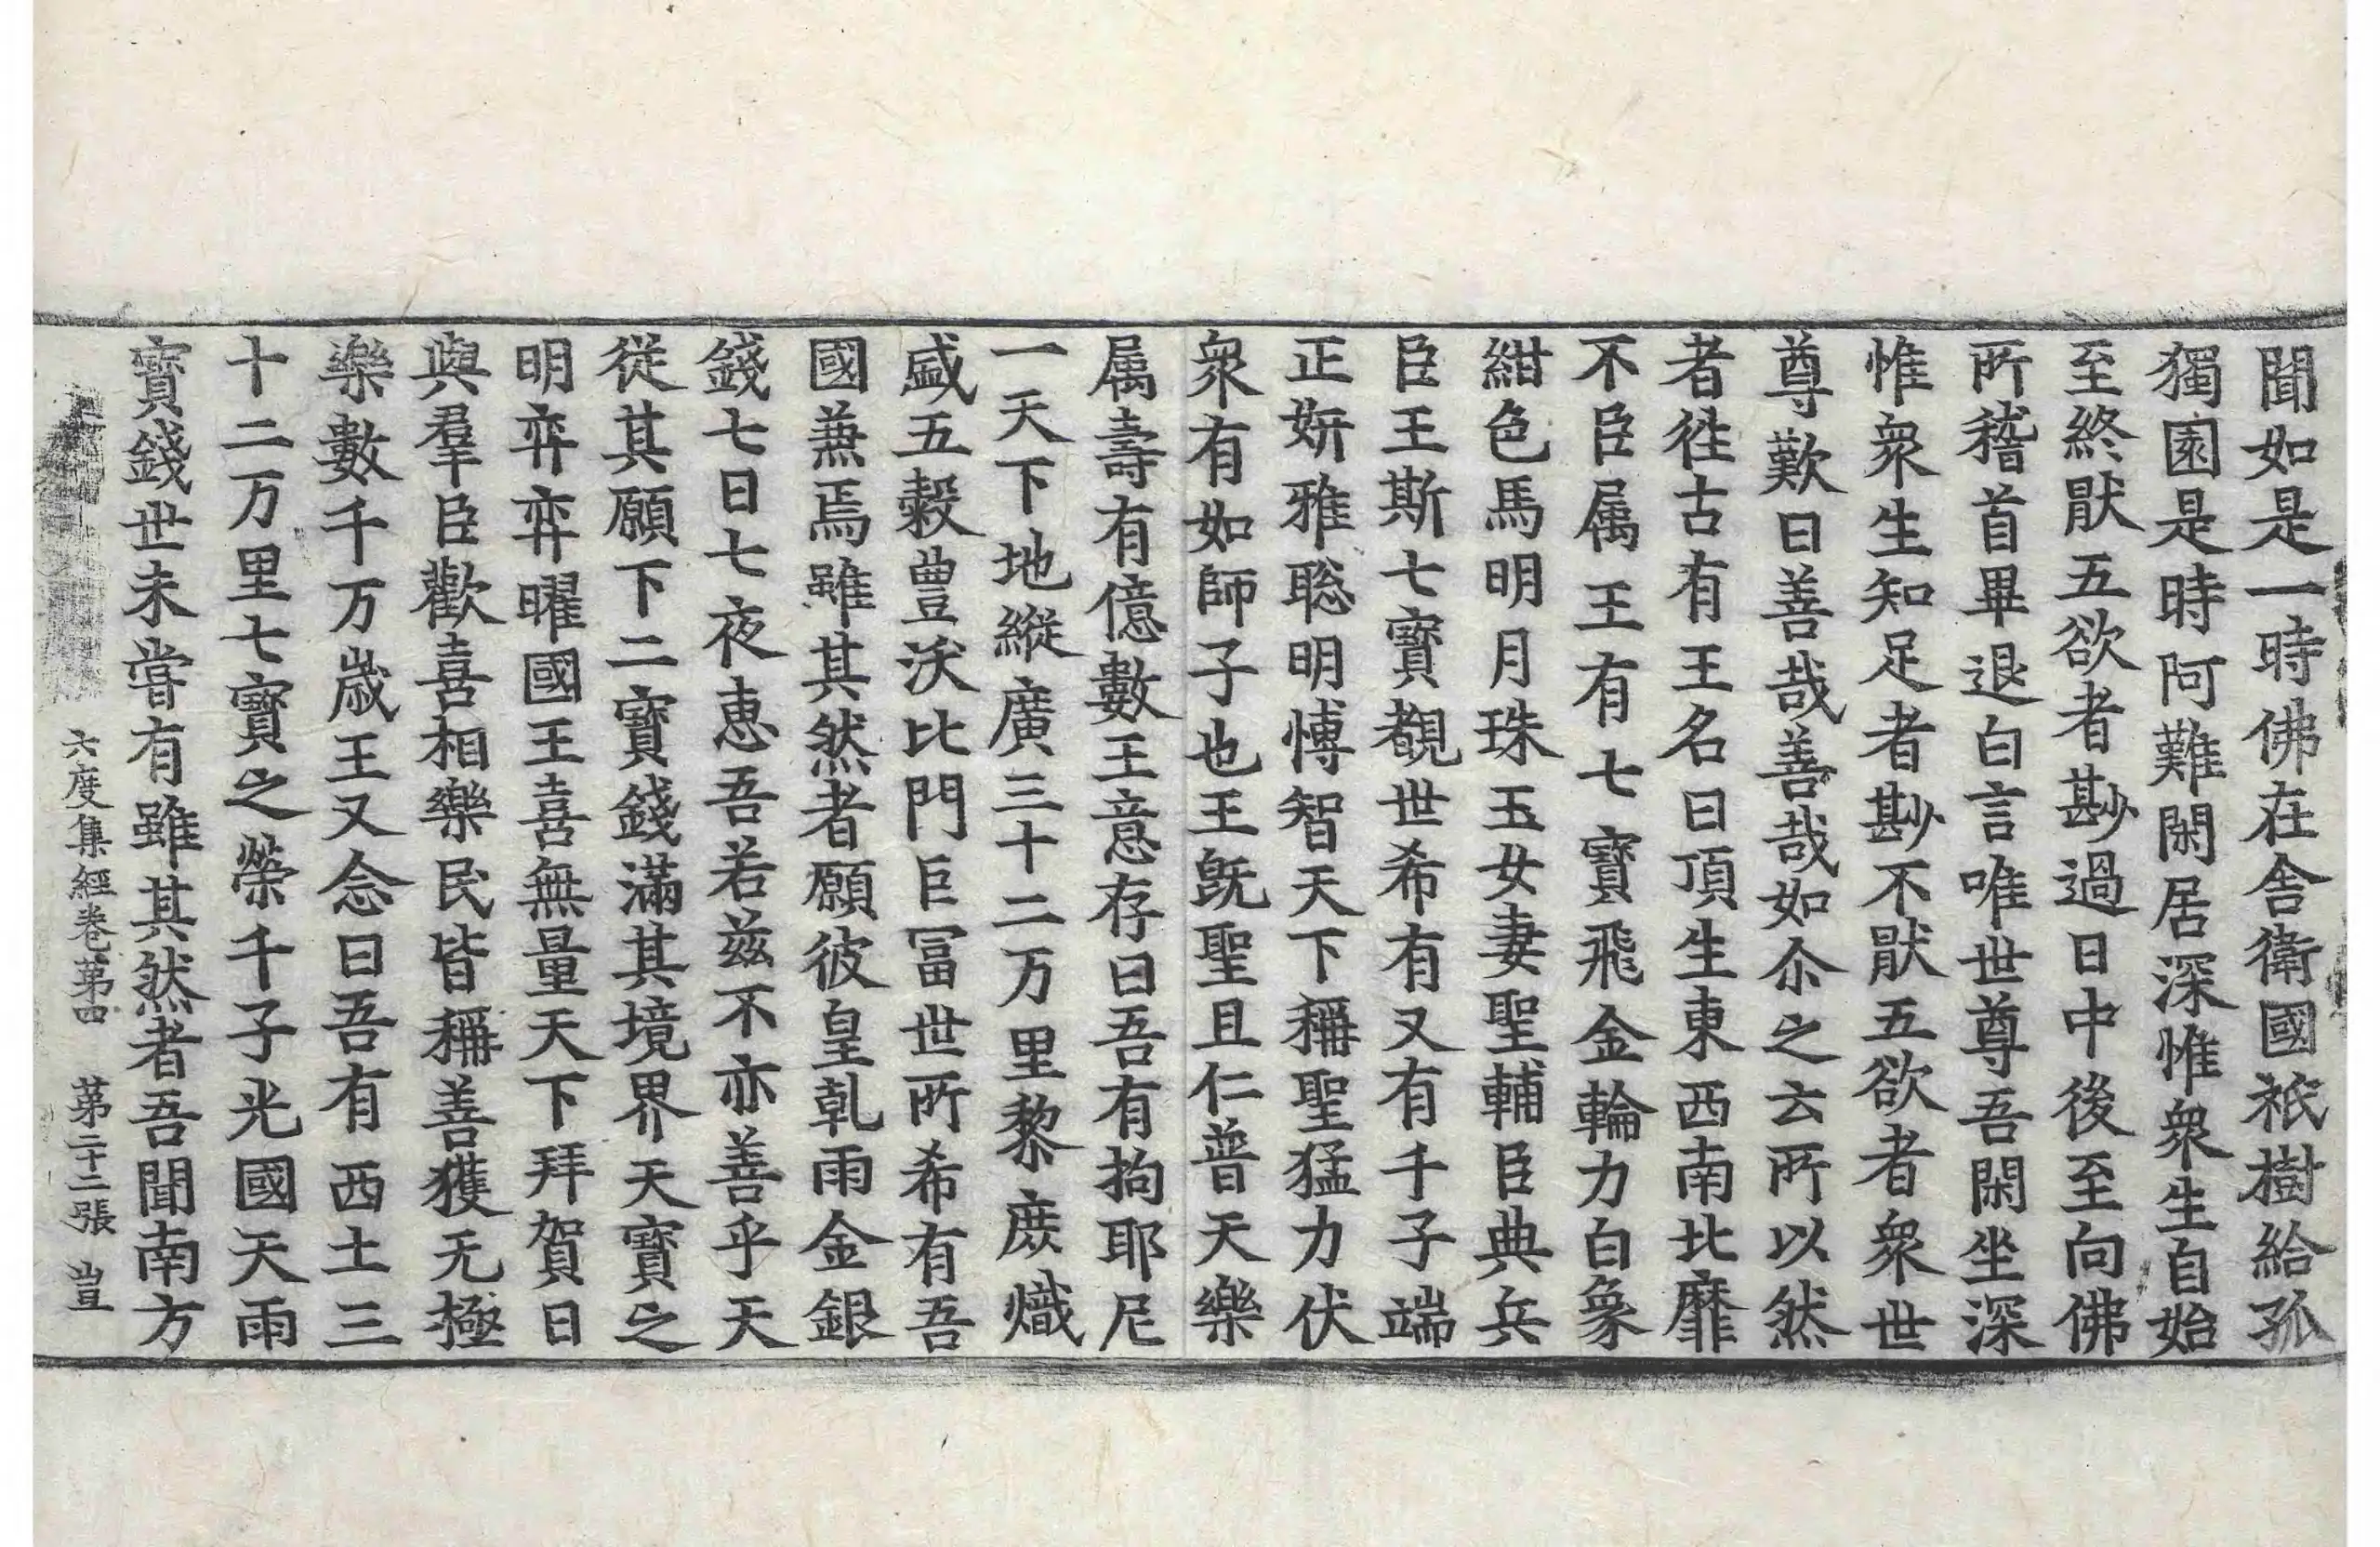 聞如是一時佛在舍衛國祇樹給孤
獨園是時阿難閑居深惟衆生自始
至終猒五欲者尠過日中後至向佛
所稽首畢退白言唯世尊吾閑坐深
惟衆生知足者尠不猒五欲者衆世
尊歎曰善哉善哉如尒之云所以然
者徃古有王名曰頂生東西南北靡
不臣属王有七寶飛金輪力白象
紺色馬明月珠玉女妻聖輔臣典兵
臣王斯七寶覩世希有又有千子端
正妍雅聡明愽智天下稱聖猛力伏
衆有如師子也王旣聖且仁普天樂
属壽有億數王意存曰吾有拘耶尼
一天下地縱廣三十二万里黎庶熾
盛五糓豊沃比門巨冨世所希有吾
國兼焉雖其然者願彼皇乹雨金銀
錢七日七夜恵吾若兹不亦善乎天
從其願下二寶錢滿其境界天寶之
明弈弈曜國王喜無量天下拜賀日
與羣臣歡喜相樂民皆稱善獲无極
樂數千万歳王又念曰吾有西土三
十二万里七寶之榮千子光國天雨
寶錢世未甞有雖其然者吾聞南方
六度集經卷苐四 苐二十二張 豈